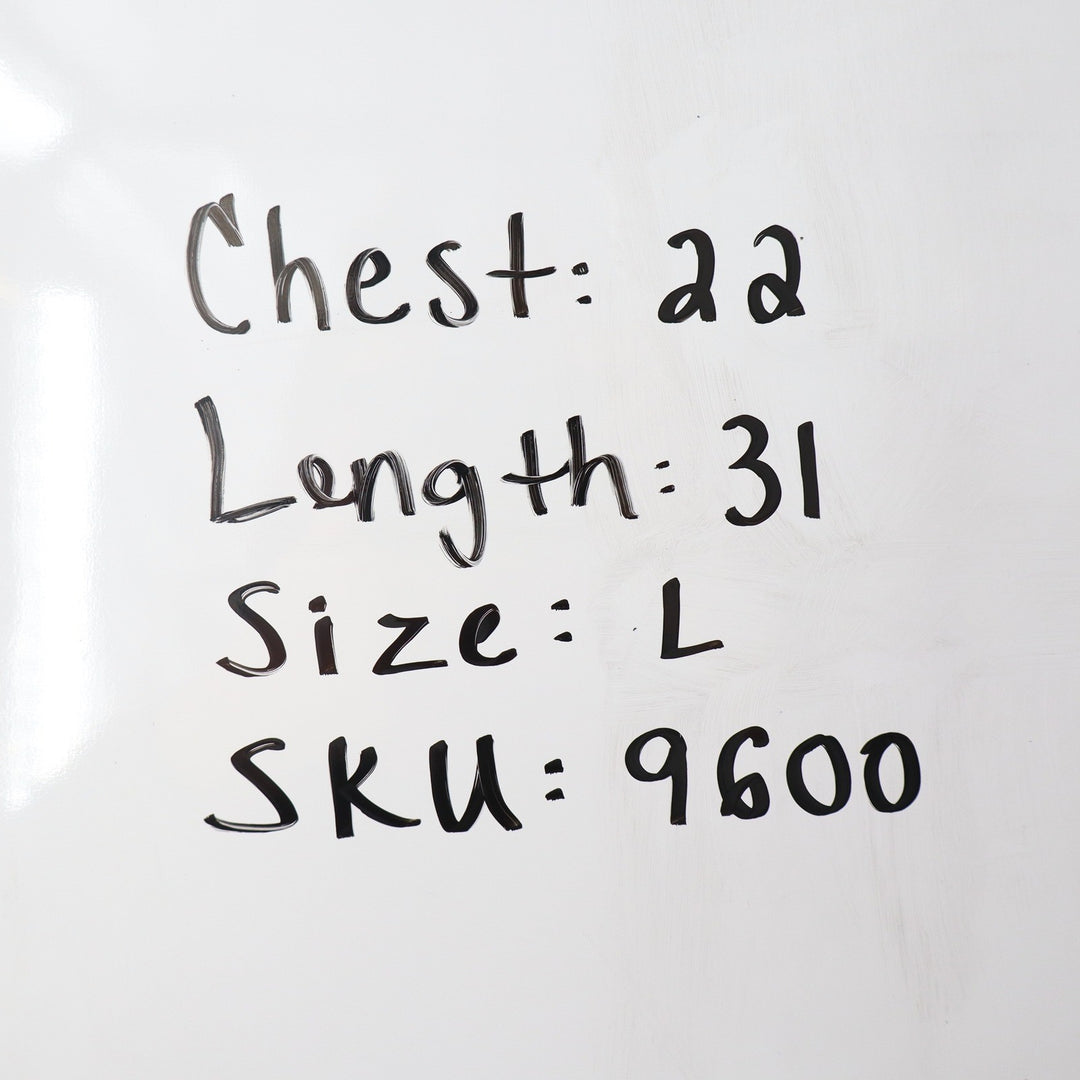 Chest: 22
Length: 31
Size: L
SKU: 9600